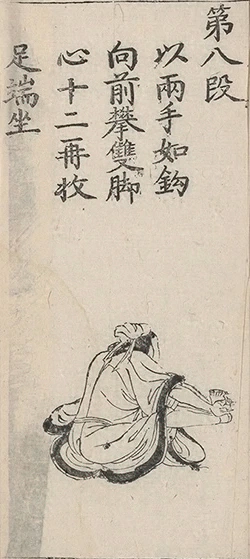 第八段
以兩手如鈎
向前攀雙脚
心十二冊收
足端坐